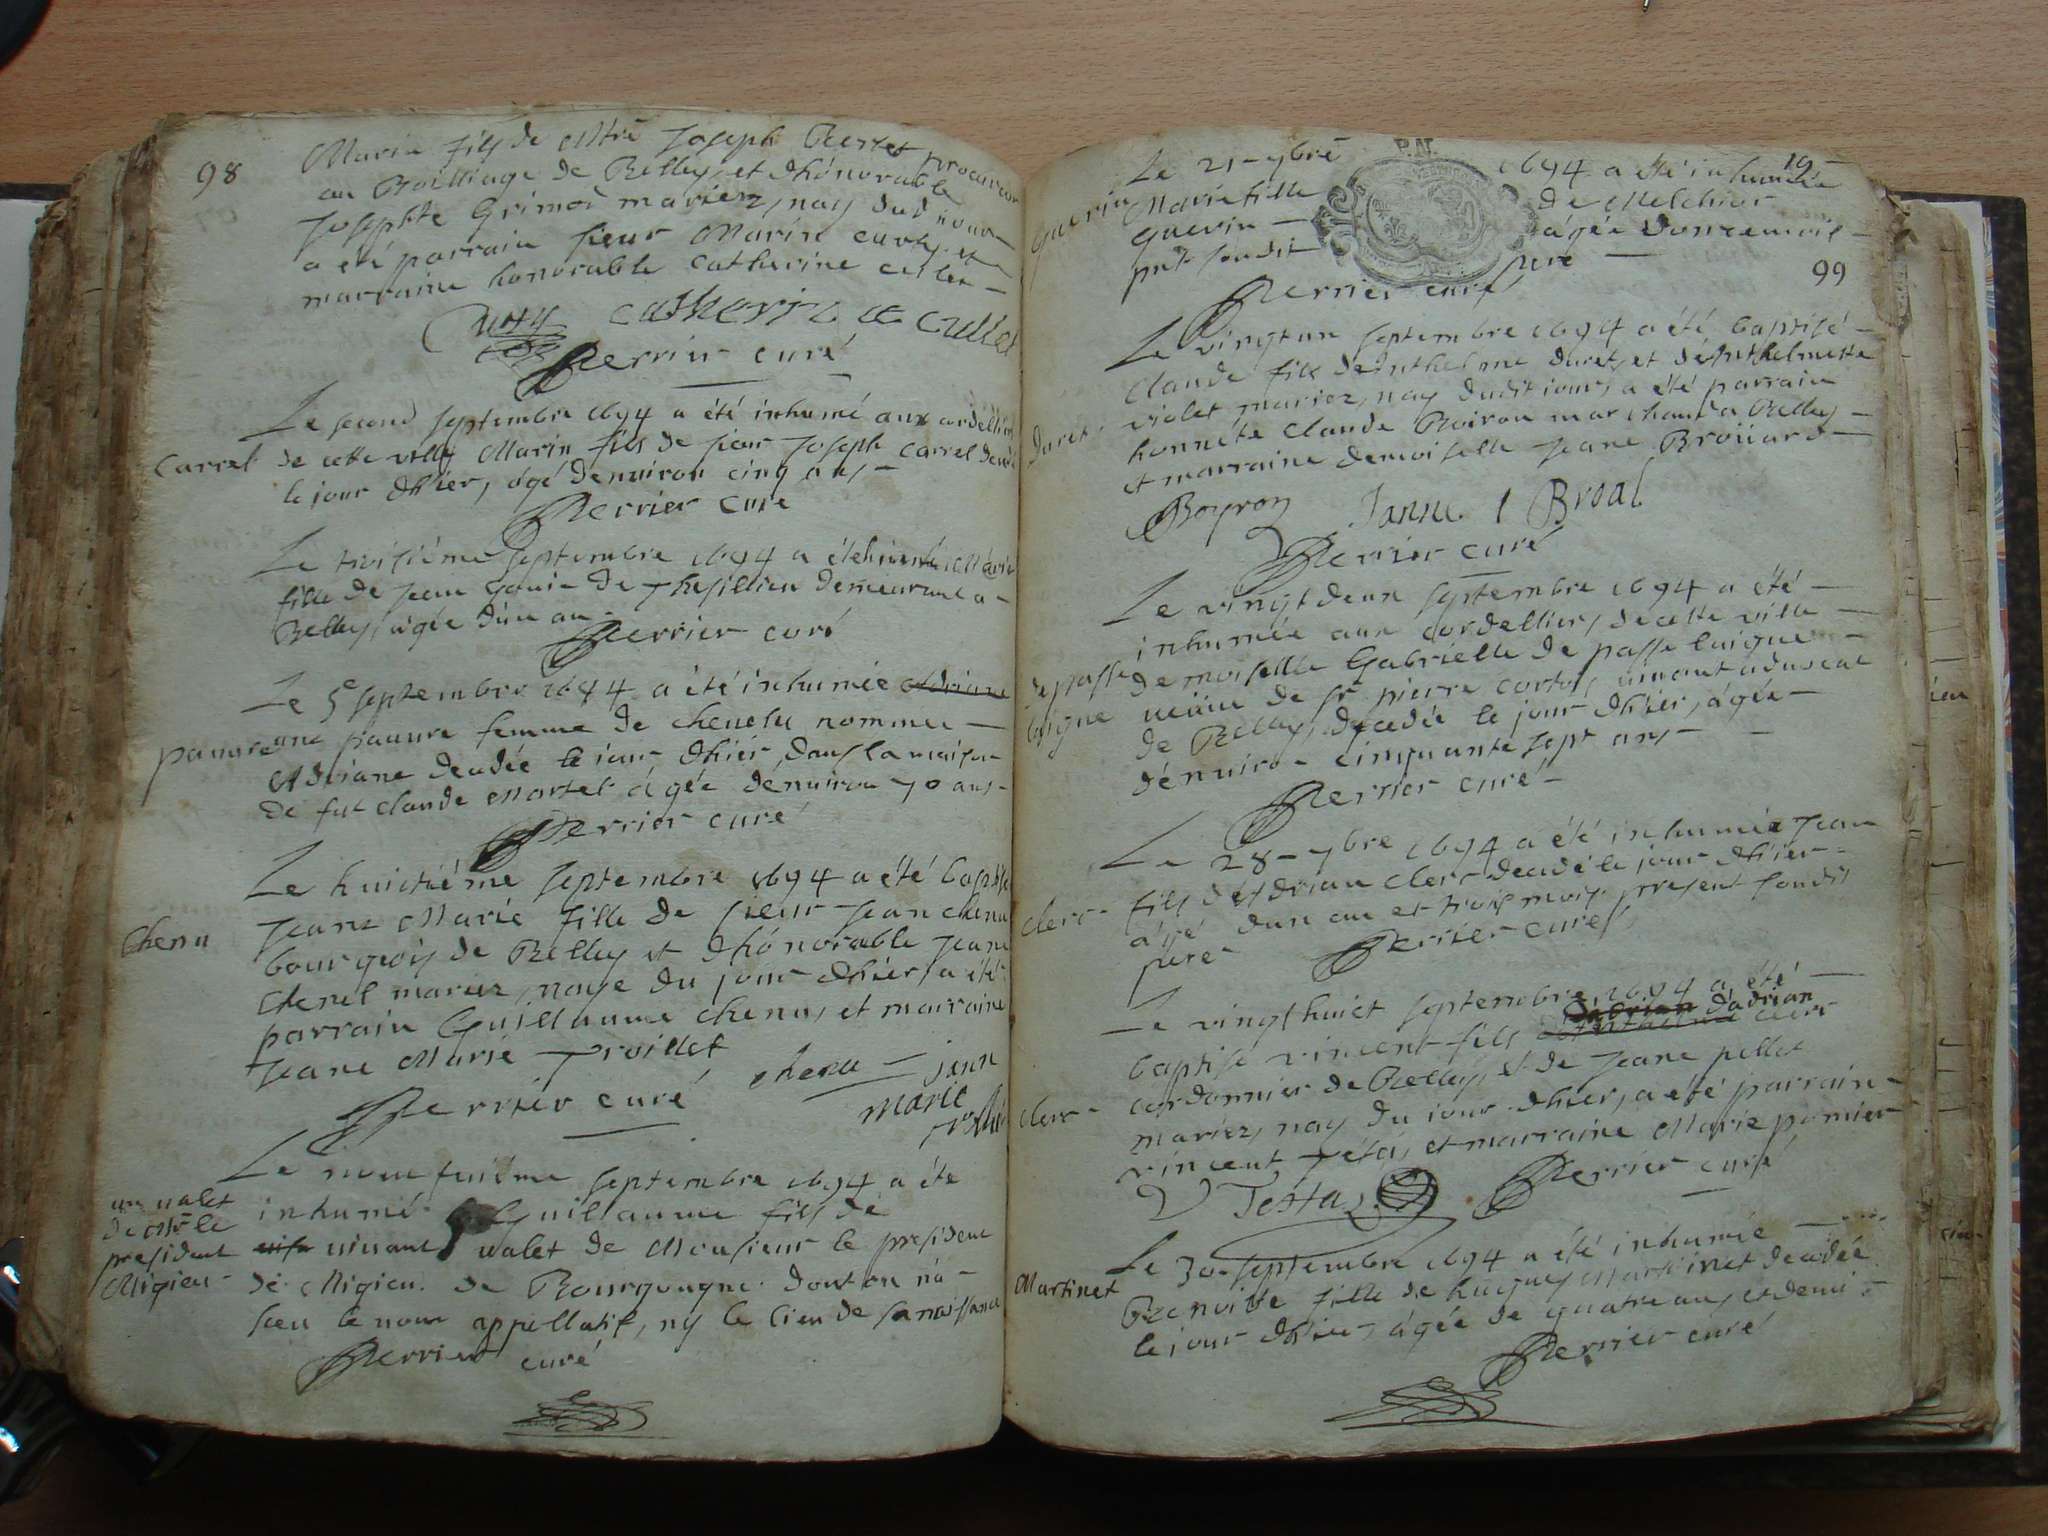 98
Marin fils de Mtre Joseph procureur
au Bailliage de Belley, et d'honorable
Josephte Grimod mariez, nay dud
a eté parrain sieur Marin et
marraine honorable Catherine cullet
catherine cullet
Perrier curé
Le second septembre 1694 a été inhumé aux cordelliers
Carrel
de cette ville Marin fils de sieur Joseph Carrel
le jour d'hier, âgé d'environ cinq ans
Perrier curé
Le troisiéme septembre 1694 a été Marie
fille de Jean de demeurant a
Belley, âgée d'un an
Perrier curé
Le 5e septembre 1694 a été inhumée
pauvre
une pauvre femme de nommée
Adriane decedée le jour d'hier, dans la maison
de fut Claude Martel âgée d'environ 70 ans
Perrier curé
Le huictiéme septembre 1694 a été baptisé
Chenu
Jeane Marie fille de sieur Jean chenu
bourgeois de Belley et d'honorable Jeane
mariez, naye du jour d'hier, a été
parrain Guillaume chenu, et marraine
Jeane Marie Troillet
chenu jann
marie
Perrier curé
Le neufviéme septembre 1694 a été
un valet
de Mr le
president
Migieu
inhumé Guillaume fils de
vivant valet de Monsieur le president
de Migieu de Bourgougne dont on n'a
sceu le nom appellatif, ny le lieu de sa naissance
Perrier curé
19
Le 21 7bre 1694 a été inhumée
Guerin
Marie fille de Melchior
Guerin âgée d'onze mois
pnt sondit pere
99
Perrier curé
Le vingt un septembre 1694 a été baptisé
Duret
Claude fils d'Anthelme duret, et d'Anthelmette
violet mariez, nay dudit jour, a été parrain
honnéte Claude Boiron marchant a Belley
et marraine demoiselle Jeane Broüard
Boyron Janne Broal
Perrier curé
Le vingt deux septembre 1694 a été
inhumée aux cordelliers de cette ville
de passe
laigue
demoiselle Gabrielle de passe laigue
veüve de Sr pierre vivant advocat
de Belley, decedée le jour d'hier, âgée
d'environ cinquante sept ans
Perrier curé
Le 28 7bre 1694 a été inhumé Jean
Clerc
fils d'Adrian Clerc decedé le jour d'hier
âgé d'un an et trois mois present sondit
pere Perrier curé
Le vingt huict septembre 1694 a été
baptisé vincent fils d'adrian clerc
Clerc
cordonnier de Belley, et de Jeane pellet
mariez, nay du jour d'hier, a été parrain
vincent Téta, et marraine Marie pomier
V Testaz Perrier curé
Le 30 septembre 1694 a été inhumée
Martinet
Benoitte fille de hugues Martinet decedée
le jour d'hier, âgée de quatre ans et demi
Perrier curé